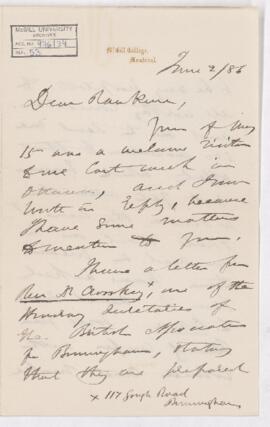 McGILL UNIVERSITY
ARCHIVES
ACC. NO. 
REF. 
McGill College,
Montreal.
June 2/86
Dear Rankine,
Yours of May
15 was a welcome visitor
last week in
Ottawa, and I now
write in reply, because
I have some matters
to mention to you.
I have a letter from
Rev Dr Crosskey x, one of the
Secretaries of
the British Association
for Birmingham, stating
that they are prepared
x 117 Gough Road
Birmingham